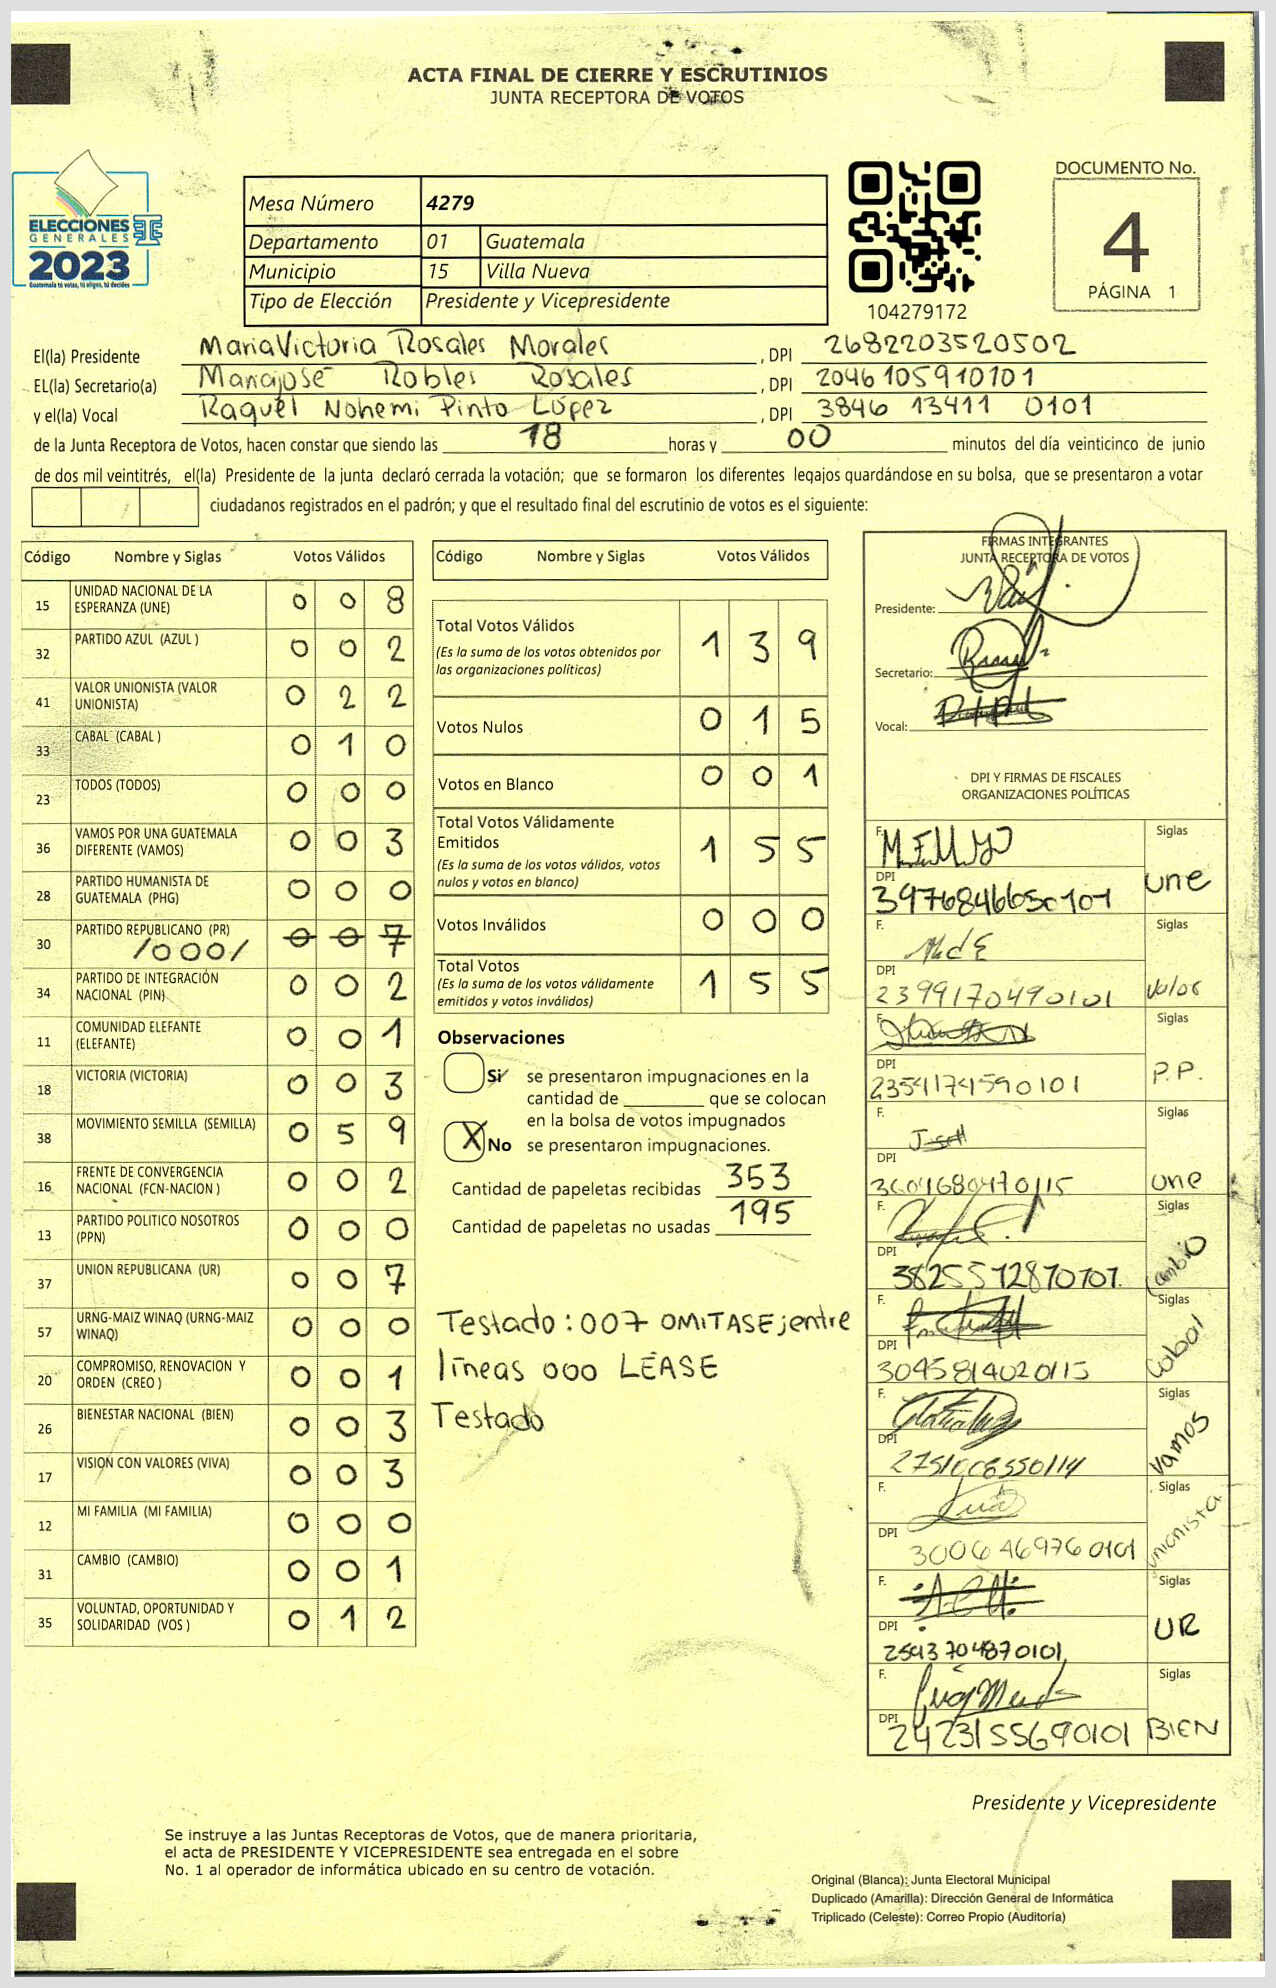 ACTA FINAL DE CIERRE Y ESCRUTINIOS
JUNTA RECEPTORA DE VOTOS
ELECCIONES
GENERALES
2023
Guatemala tú votas, tú eliges, tú decides
Mesa Número 4279
Departamento 01 Guatemala
Municipio 15 Villa Nueva
Tipo de Elección Presidente y Vicepresidente
104279172
DOCUMENTO No.
4
PÁGINA 1
El(la) Presidente Maria Victoria Rosales Morales , DPI 2682203520502
EL(la) Secretario(a) Mariajosé Robles Rosales , DPI 2046105910101
y el(la) Vocal Raquel Nohemi Pinto López , DPI 3846 13411 0101
de la Junta Receptora de Votos, hacen constar que siendo las 18 horas y 00 minutos del día veinticinco de junio
de dos mil veintitrés, el(la) Presidente de la junta declaró cerrada la votación; que se formaron los diferentes legajos guardándose en su bolsa, que se presentaron a votar
ciudadanos registrados en el padrón; y que el resultado final del escrutinio de votos es el siguiente:
Código Nombre y Siglas Votos Válidos
15 UNIDAD NACIONAL DE LA ESPERANZA (UNE) 0 0 8
32 PARTIDO AZUL (AZUL ) 0 0 2
41 VALOR UNIONISTA (VALOR UNIONISTA) 0 2 2
33 CABAL (CABAL ) 0 1 0
23 TODOS (TODOS) 0 0 0
36 VAMOS POR UNA GUATEMALA DIFERENTE (VAMOS) 0 0 3
28 PARTIDO HUMANISTA DE GUATEMALA (PHG) 0 0 0
30 PARTIDO REPUBLICANO (PR) /000/ 0 0 7
34 PARTIDO DE INTEGRACIÓN NACIONAL (PIN) 0 0 2
11 COMUNIDAD ELEFANTE (ELEFANTE) 0 0 1
18 VICTORIA (VICTORIA) 0 0 3
38 MOVIMIENTO SEMILLA (SEMILLA) 0 5 9
16 FRENTE DE CONVERGENCIA NACIONAL (FCN-NACION ) 0 0 2
13 PARTIDO POLITICO NOSOTROS (PPN) 0 0 0
37 UNION REPUBLICANA (UR) 0 0 7
57 URNG-MAIZ WINAQ (URNG-MAIZ WINAQ) 0 0 0
20 COMPROMISO, RENOVACION Y ORDEN (CREO ) 0 0 1
26 BIENESTAR NACIONAL (BIEN) 0 0 3
17 VISION CON VALORES (VIVA) 0 0 3
12 MI FAMILIA (MI FAMILIA) 0 0 0
31 CAMBIO (CAMBIO) 0 0 1
35 VOLUNTAD, OPORTUNIDAD Y SOLIDARIDAD (VOS ) 0 1 2
Código Nombre y Siglas Votos Válidos
Total Votos Válidos 1 3 9
(Es la suma de los votos obtenidos por
las organizaciones políticas)
Votos Nulos 0 1 5
Votos en Blanco 0 0 1
Total Votos Válidamente
Emitidos 1 5 5
(Es la suma de los votos válidos, votos
nulos y votos en blanco)
Votos Inválidos 0 0 0
Total Votos 1 5 5
(Es la suma de los votos válidamente
emitidos y votos inválidos)
Observaciones
Si se presentaron impugnaciones en la
cantidad de ________ que se colocan
en la bolsa de votos impugnados
X No se presentaron impugnaciones.
Cantidad de papeletas recibidas 353
Cantidad de papeletas no usadas 195
Testado: 007 OMITASE; entre
líneas 000 LÉASE
Testado
FIRMAS INTEGRANTES
JUNTA RECEPTORA DE VOTOS
Presidente:
Secretario:
Vocal:
DPI Y FIRMAS DE FISCALES
ORGANIZACIONES POLÍTICAS
F. Siglas
DPI 3976846650101 une
F. Siglas
DPI 2399170490101 Valor
F. Siglas
DPI 2354174590101 P.P.
F. Siglas
DPI 3601680470115 une
F. Siglas
DPI 3825572870101 Cambio
F. Siglas
DPI 3045814020115 Cabal
F. Siglas
DPI 2751008550114 Vamos
F. Siglas
DPI 3006469760101 unionista
F. Siglas
DPI 2593704870101 UR
F. Siglas
DPI 2423155690101 BIEN
Presidente y Vicepresidente
Se instruye a las Juntas Receptoras de Votos, que de manera prioritaria,
el acta de PRESIDENTE Y VICEPRESIDENTE sea entregada en el sobre
No. 1 al operador de informática ubicado en su centro de votación.
Original (Blanca): Junta Electoral Municipal
Duplicado (Amarilla): Dirección General de Informática
Triplicado (Celeste): Correo Propio (Auditoría)